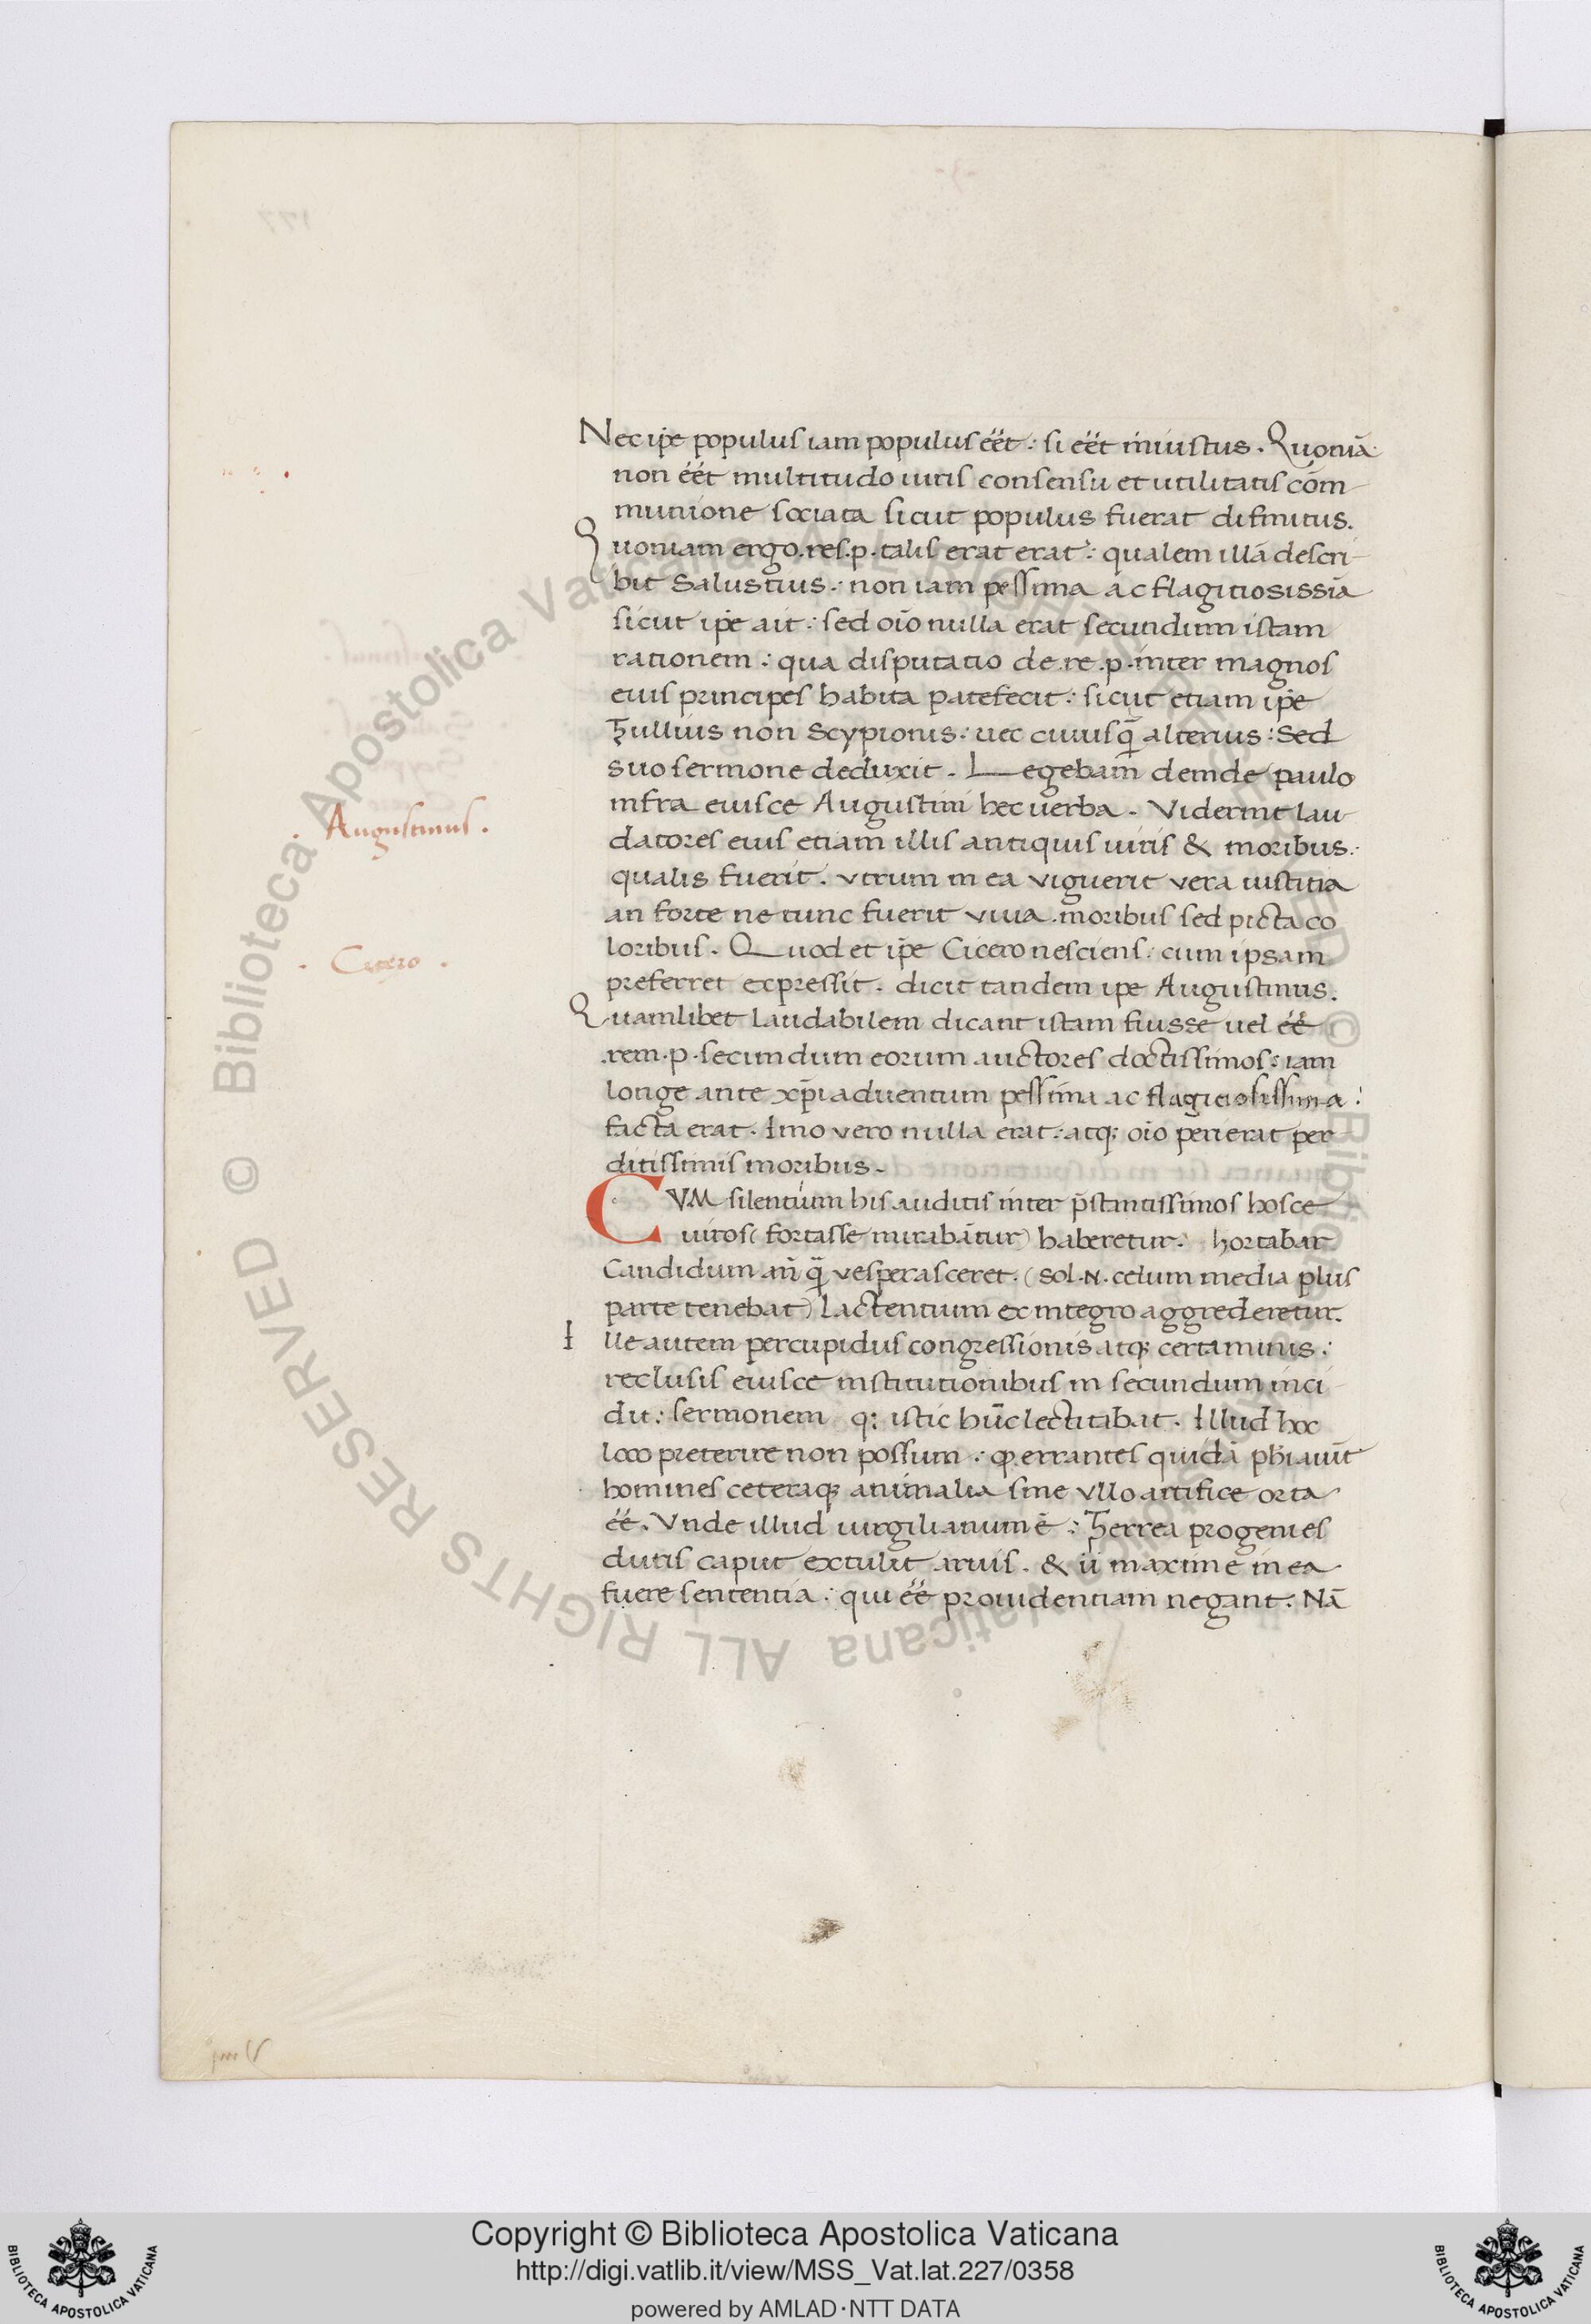 Nec ip̄e populus iam populus éét: si éét iniustus. Quoniā
non éét multitudo iuris consensu et utilitatis com̄
munione sociata sicut populus fuerat difinitus.
Quoniam ergo .res.p. talis erat erat: qualem illā descri
bit Salustius: non iam pessima ac flagitiosissīa
sicut ip̄e ait: sed oīo nulla erat secundum istam
rationem: qua disputatio de .re.p. inter magnos
eius principes habita patefecit: sicut etiam ip̄e
Tullius non Scypionis: uec cuiusq̄ alterius: Sed
suo sermone deduxit. Legebam̄ deinde paulo
infra eiusce Augustini hec uerba. Viderint lau
datores eius etiam̄ illis antiquis uiris & moribus:
qualis fuerit. vtrum in ea viguerit vera iustitia
an forte ne tunc fuerit viua moribus sed picta co
. Augustinus .
loribus. Quod et ip̄e Cicero nesciens: cum ipsam
. Cicero .
preferret expressit. dicit tandem ipe Augustinus.
Quamlibet laudabilem dicant istam fuisse uel éé
.rem.p. secundum eorum auctores doctissimos: iam
longe ante xp̄i aduentum pessima ac flagiciosissima:
facta erat. Imo vero nulla erat: atq; oīo perierat per
ditissimis moribus.
CVM silentium his auditis inter p̄stantissimos hosce
uiros (fortasse mirabātur) haberetur. hortabar
Candidum an̄ q̄ vesperasceret. (sol .N. celum media plus
parte tenebat) Lactentium ex integro aggrederetur.
Ille autem percupidus congressionis atq; certaminis:
reclusis eiusce institutionibus in secundum inci
dit: sermonem q; istic hūc lectitabat. Illud hoc
loco preterire non possum: ꝙ errantes quidā phi aiūt
homines ceteraq; animalia sine vllo artifice orta
éé. Vnde illud uirgilianum ē: Terrea progenies
duris caput extulit aruis. & ii maxime in ea
fuere sententia: qui éé prouidentiam negant. Nā
Copyright © Biblioteca Apostolica Vaticana
http://digi.vatlib.it/view/MSS_Vat.lat.227/0358
powered by AMLAD·NTT DATA
BIBLIOTECA APOSTOLICA VATICANA
BIBLIOTECA APOSTOLICA VATICANA
© Biblioteca Apostolica Vaticana ALL RIGHTS RESERVED
© Biblioteca Apostolica Vaticana ALL RIGHTS RESERVED